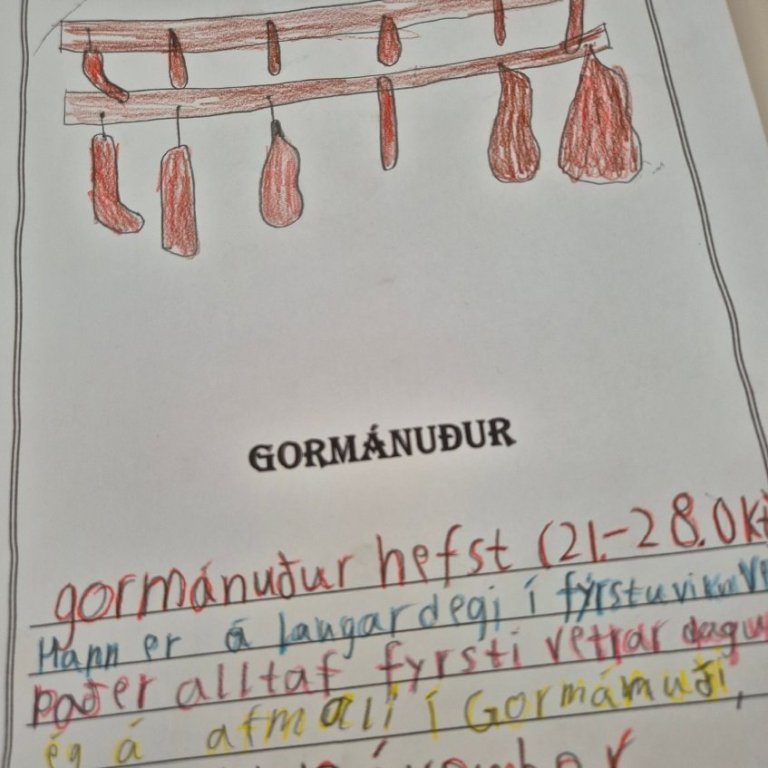 GORMÁNUÐUR
gormánuður hefst (21.-28.Okt
Hann er á laugardegi í fyrstu viku
Það er alltaf fyrsti vetrar dagu
ég á afmæli í Gormámuði,